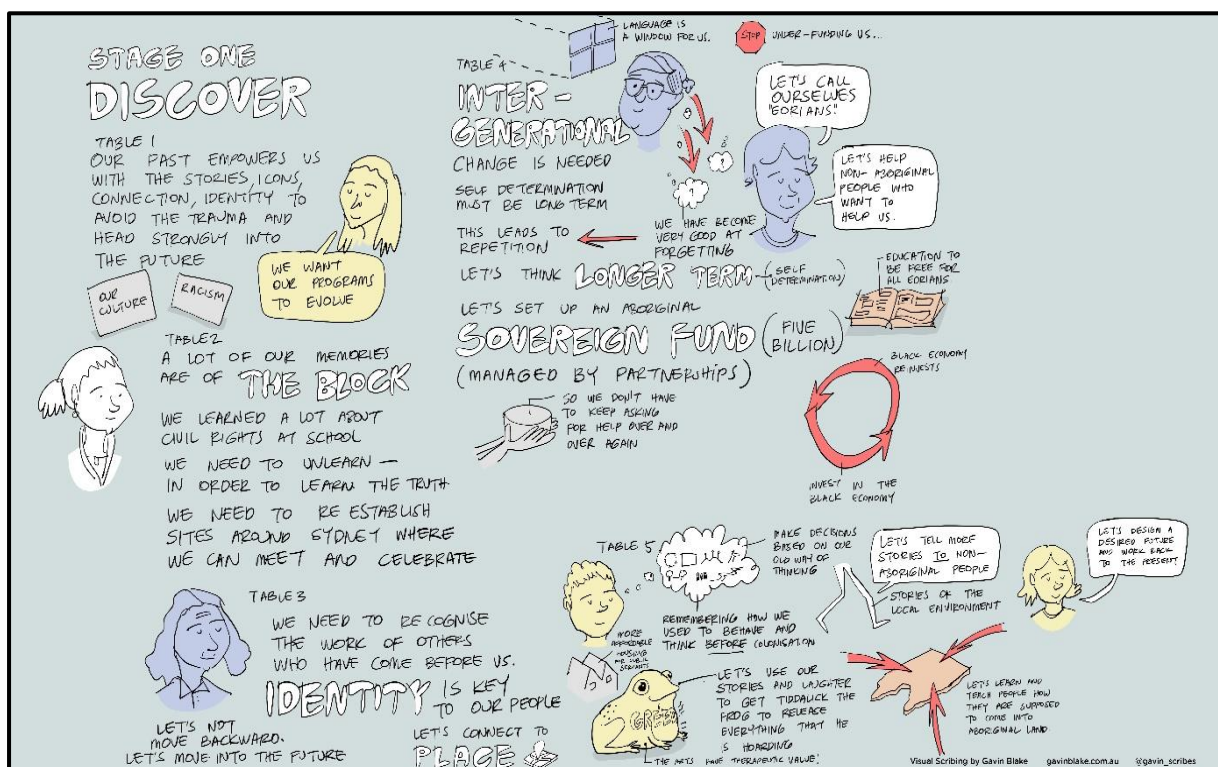 STAGE ONE
DISCOVER
TABLE 1
OUR PAST EMPOWERS US
WITH THE STORIES, ICONS,
CONNECTION, IDENTITY TO
AVOID THE TRAUMA AND
HEAD STRONGLY INTO
THE FUTURE
WE WANT
OUR PROGRAMS
TO EVOLVE
OUR
CULTURE
RACISM
TABLE 2
A LOT OF OUR MEMORIES
ARE OF THE BLOCK
WE LEARNED A LOT ABOUT
CIVIL RIGHTS AT SCHOOL
WE NEED TO UNLEARN —
IN ORDER TO LEARN THE TRUTH
WE NEED TO RE ESTABLISH
SITES AROUND SYDNEY WHERE
WE CAN MEET AND CELEBRATE
TABLE 3
WE NEED TO RECOGNISE
THE WORK OF OTHERS
WHO HAVE COME BEFORE US.
IDENTITY IS KEY
TO OUR PEOPLE
LET'S NOT
MOVE BACKWARD.
LET'S MOVE INTO THE FUTURE
LET'S CONNECT TO
PLACE
LANGUAGE IS
A WINDOW FOR US.
STOP UNDER-FUNDING US...
TABLE 4
INTER-
GENERATIONAL
CHANGE IS NEEDED
SELF DETERMINATION
MUST BE LONG TERM
THIS LEADS TO
REPETITION
WE HAVE BECOME
VERY GOOD AT
FORGETTING
LET'S CALL
OURSELVES
"EORIANS."
LET'S HELP
NON-ABORIGINAL
PEOPLE WHO
WANT TO
HELP US.
LET'S THINK LONGER TERM — (SELF
DETERMINATION)
EDUCATION TO
BE FREE FOR
ALL EORIANS
LET'S SET UP AN ABORIGINAL
SOVEREIGN FUND (FIVE
BILLION)
(MANAGED BY PARTNERSHIPS)
SO WE DON'T HAVE
TO KEEP ASKING
FOR HELP OVER AND
OVER AGAIN
BLACK ECONOMY
REINVESTS
INVEST IN THE
BLACK ECONOMY
TABLE 5
MAKE DECISIONS
BASED ON OUR
OLD WAY OF
THINKING
REMEMBERING HOW WE
USED TO BEHAVE AND
THINK BEFORE COLONISATION
MORE
AFFORDABLE
HOUSING
FOR PUBLIC
SERVANTS
LET'S TELL MORE
STORIES TO NON-
ABORIGINAL PEOPLE
STORIES OF THE
LOCAL ENVIRONMENT
LET'S DESIGN A
DESIRED FUTURE
AND WORK BACK
TO THE PRESENT
GREED
LET'S USE OUR
STORIES AND LAUGHTER
TO GET TIDDALICK THE
FROG TO RELEASE
EVERYTHING THAT HE
IS HOARDING
THE ARTS HAVE THERAPEUTIC VALUE.
LET'S LEARN AND
TEACH PEOPLE HOW
THEY ARE SUPPOSED
TO COME INTO
ABORIGINAL LAND
Visual Scribing by Gavin Blake gavinblake.com.au @gavin_scribes